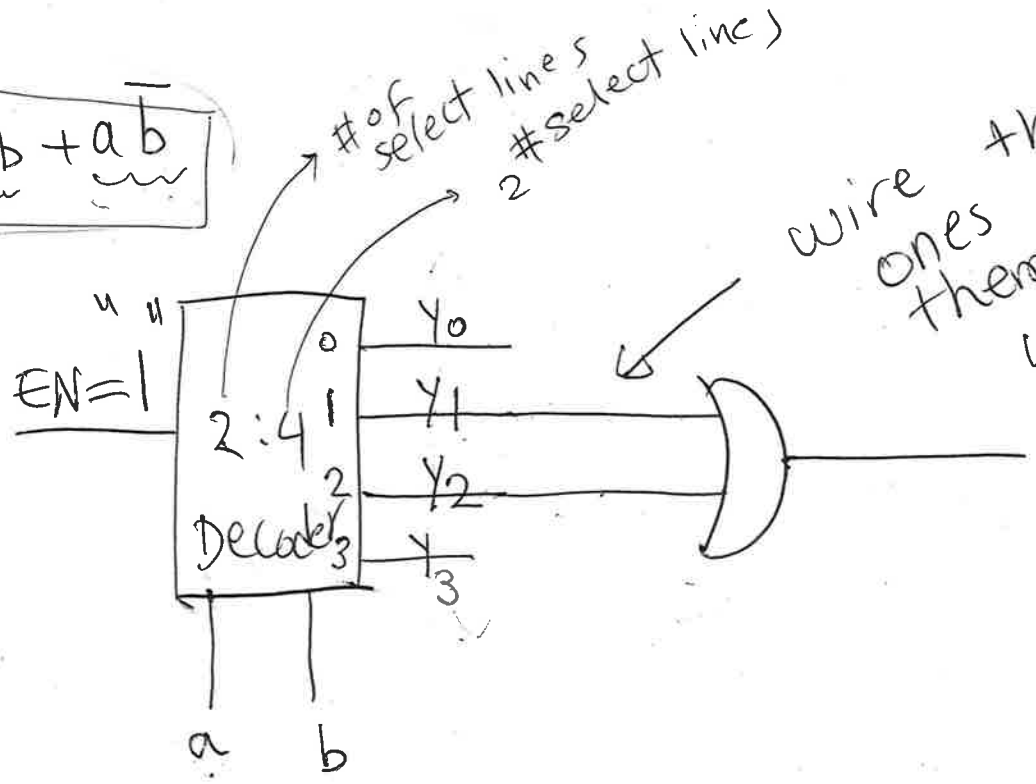 b + a b̅
# of select lines
2 # select lines
wire
ones
" "
EN=1
2:4
Decoder
0
1
2
3
Y0
Y1
Y2
Y3
a
b